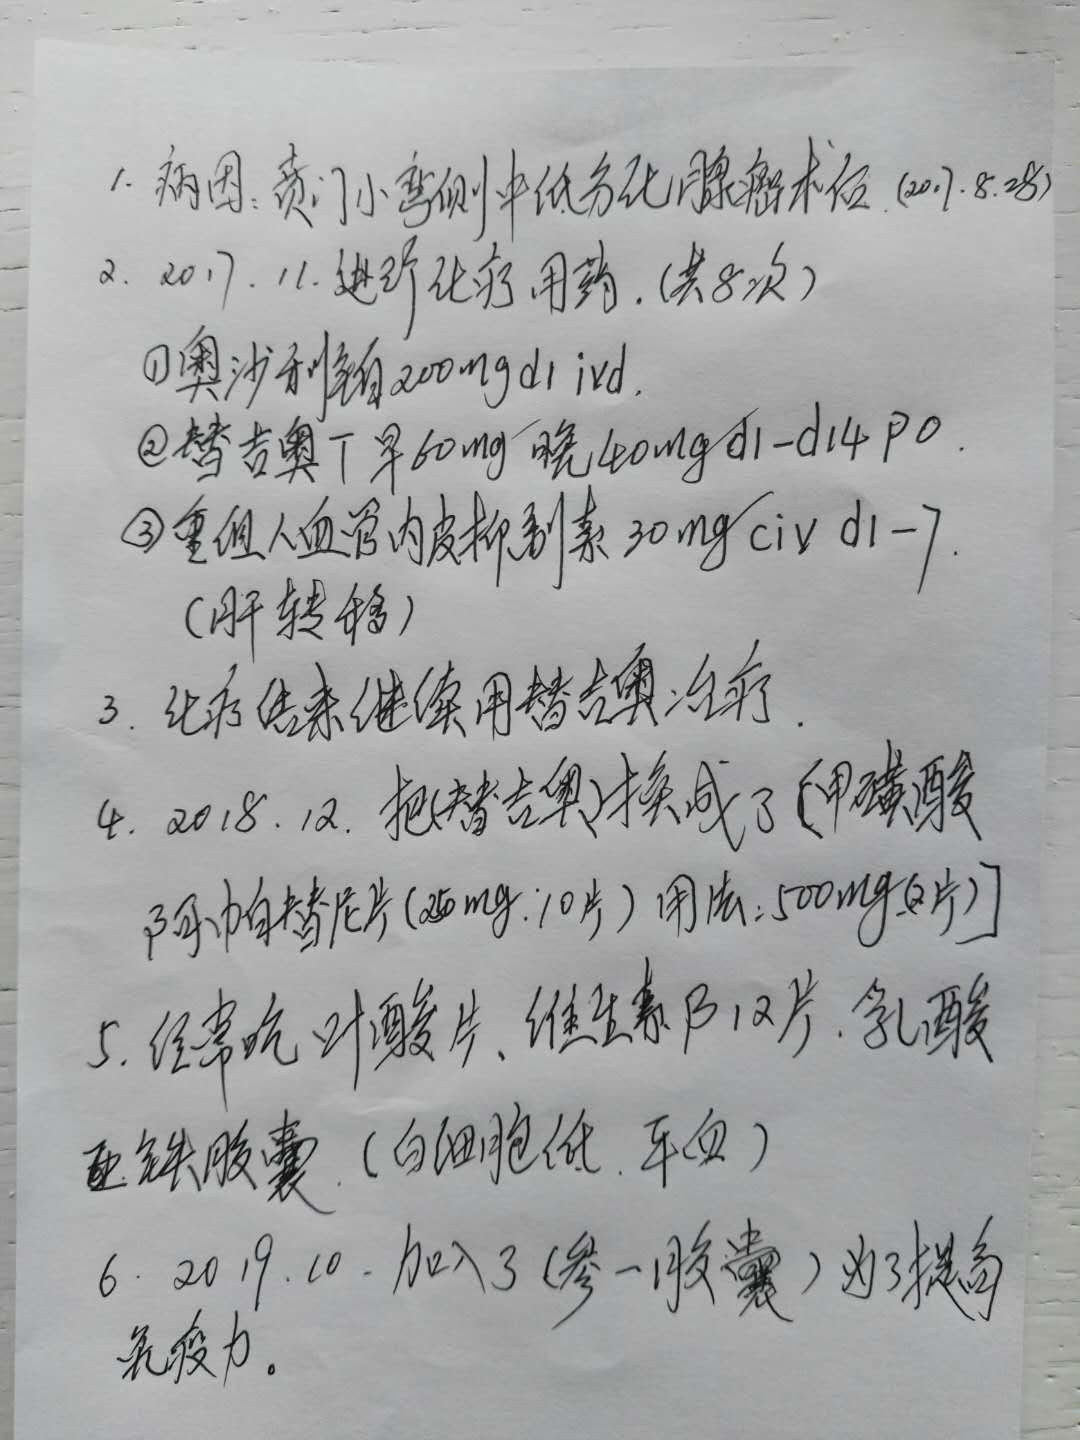 1. 病因:贲门小弯侧中低分化腺癌术后.(2017.8.28)
2. 2017.11.进行化疗用药.(共8次)
①奥沙利铂200mg d1 ivd.
②替吉奥T早60mg 晚40mg d1-d14 PO.
③重组人血管内皮抑制素30mg civ d1-7.
(肝转移)
3. 化疗结束继续用替吉奥治疗.
4. 2018.12. 把(替吉奥)换成了[甲磺酸
阿帕替尼片(250mg:10片)用法:500mg(2片)]
5. 经常吃叶酸片、维生素B12片.乳酸
亚铁胶囊.(白细胞低.平血)
6. 2019.10.加入了(参一胶囊)为了提高
免疫力。